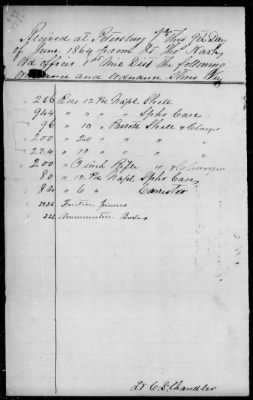 Received at Petersburg Va this 9th Day
of June 1864 from Lt Thos Nash
Ord officer 1st Mil Dist the following
Ordnance and Ordnance Stores Viz
256 Rds 12 Pdr Napl Shell
944 " " " " Sphr Case
96 " 10 " Parrott Shell & Charges
200 " 20 " " "
224 " 10 " " "
200 " 3 inch Rifle " & Charges
80 " 12 Pdr Napl Sphr Case
80 " 6 " Canister
Friction Primers
Ammunition Boxes
Lt C. S. Chandler